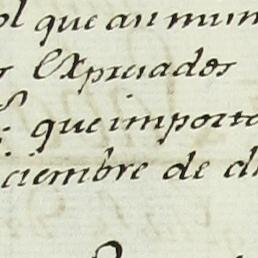 ol que an mun
s Expresados
que importa
ciembre de di